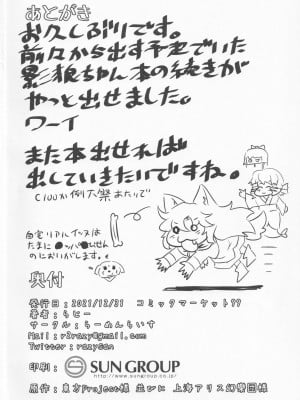 あとがき
お久しぶりです。
前々から出す予定でいた
影狼ちゃん本の続きが
やっと出せました。
ワーイ
また本出せれば
出していきたいですね。
C100か例大祭あたりで
自宅リアルインヌは
たまに
のにおいがします。
奥付
発行日：2021/12/31　コミックマーケット99
著者：らじー
サークル：らーめんらいす
Mail：r2razy@gmail.com
Twitter：razysan
印刷：SUN GROUP
http://www.sungroup.co.jp/
原作：東方Project様 並びに 上海アリス幻樂団様